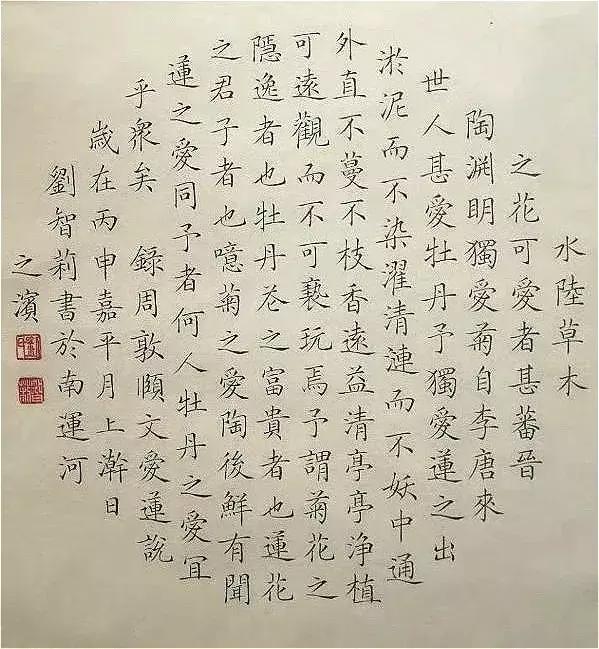 水陸草木
之花可愛者甚蕃晉
陶渊明獨愛菊自李唐來
世人甚愛牡丹予獨愛蓮之出
淤泥而不染濯清漣而不妖中通
外直不蔓不枝香遠益清亭亭淨植
可遠觀而不可褻玩焉予謂菊花之
隱逸者也牡丹花之富貴者也蓮花
之君子者也噫菊之愛陶後鮮有聞
蓮之愛同予者何人牡丹之愛宜
乎衆矣 錄周敦頤文愛蓮說
歲在丙申嘉平月上澣日
劉智莉書於南運河
之濱